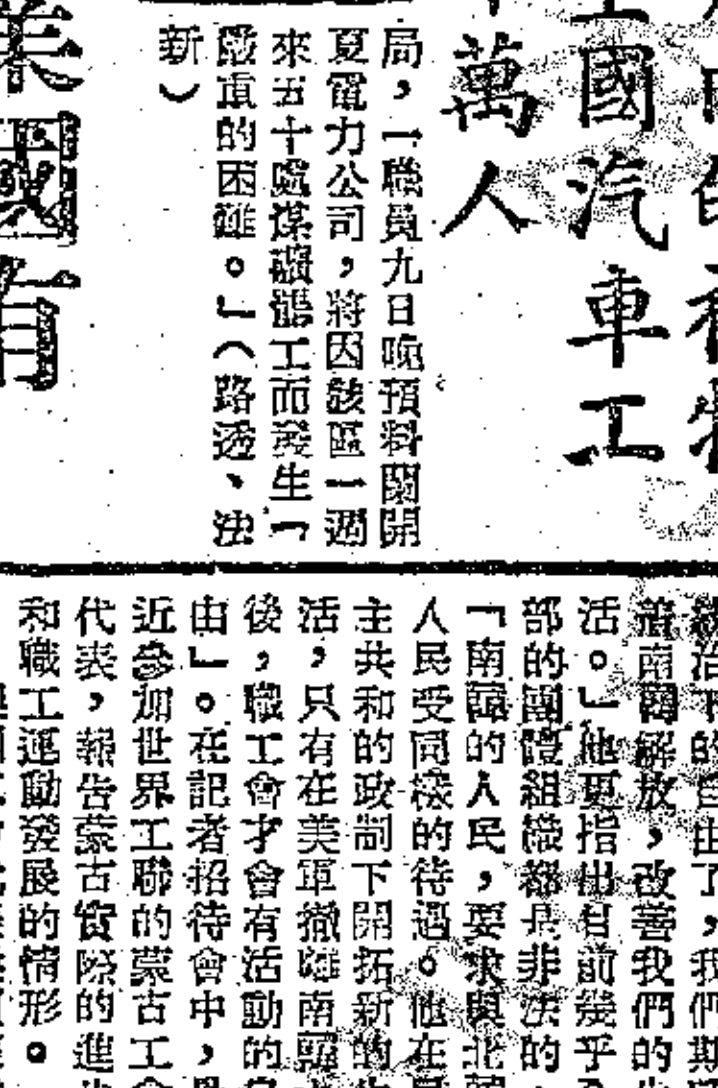 國汽車工
萬人
局，一職員九日晚預料關開
夏電力公司，將因該區一週
來五十處煤礦罷工而發生「
嚴重的困難。」（路透、法
新）
美國有
治下的自由了，我們期
南韓解放，改善我們的
活。」他更指出目前幾乎
部的團體組織都是非法的
「南韓的人民，要求與北韓
人民受同樣的待遇。他在
主共和的政制下開拓新的生
活，只有在美軍撤離南韓
後，職工會才會有活動的自
由」。在記者招待會中，
近參加世界工聯的蒙古工會
代表，報告蒙古實際的進步
和職工運動發展的情形。